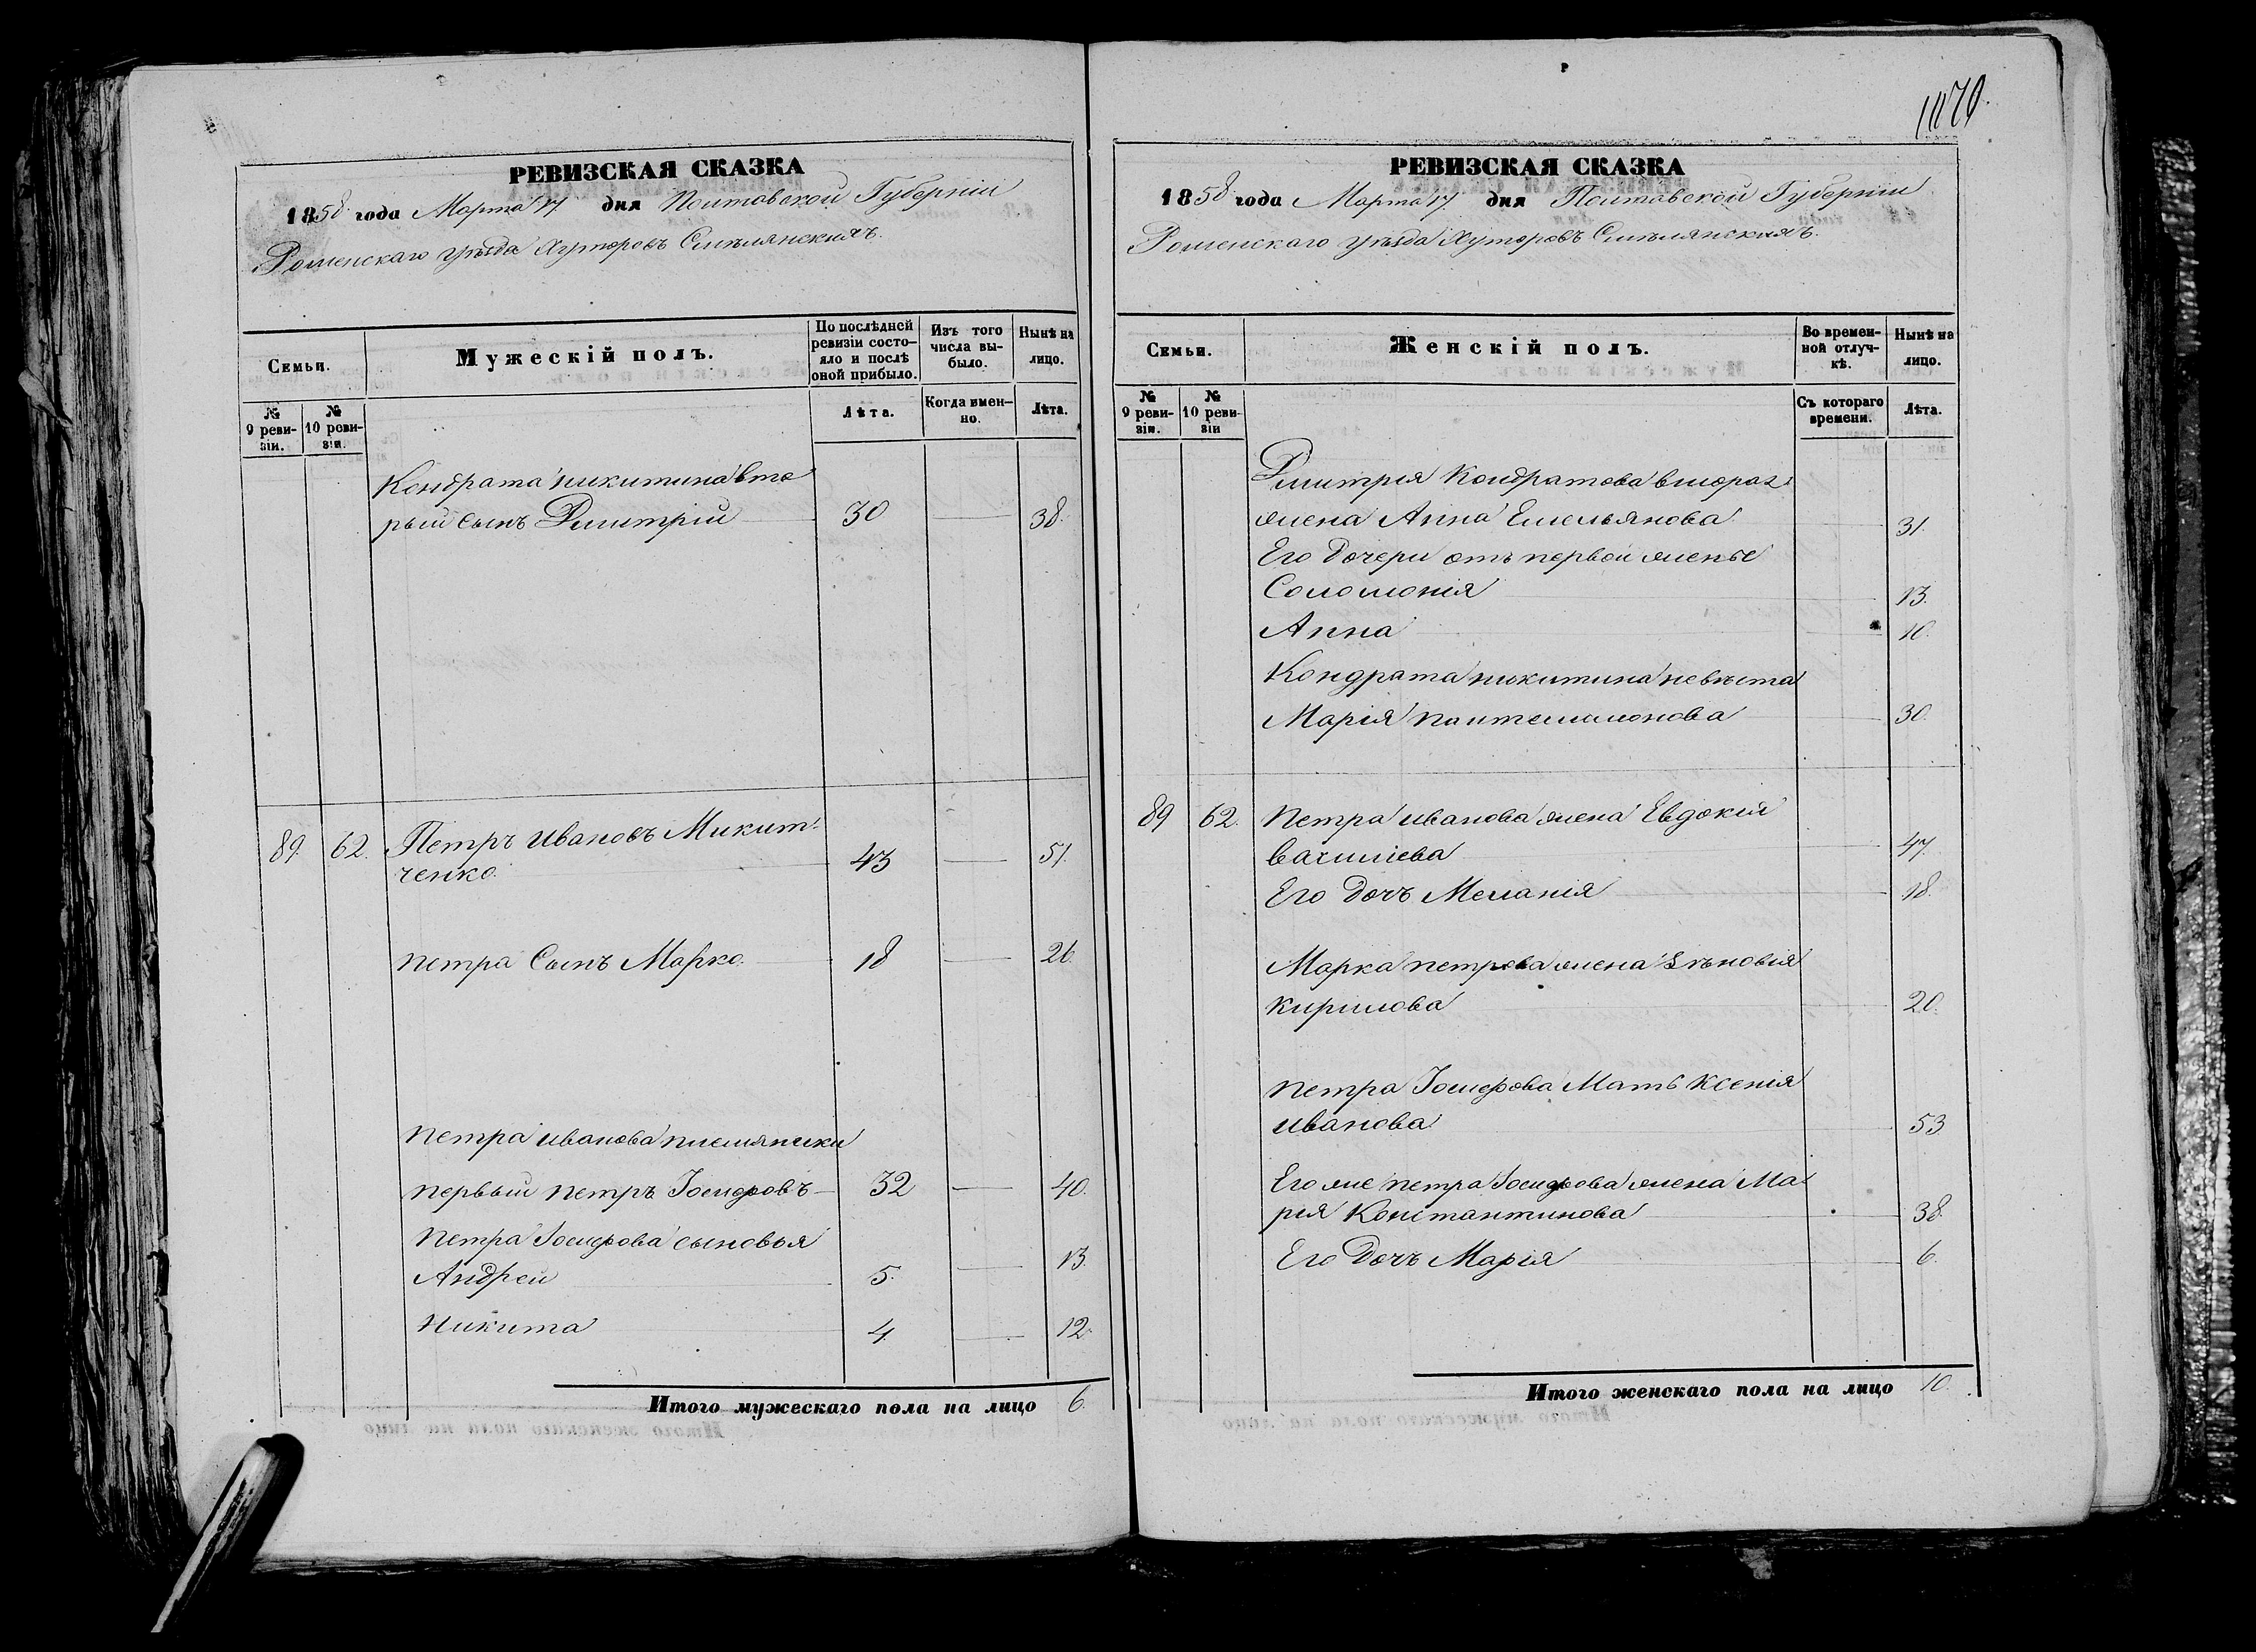 1179
РЕВИЗСКАЯ СКАЗКА
1858 года Марта 17 дня Полтавской Губерніи
Роменскаго уѣзда Хуторовъ Смѣлянскихъ.
Семьи.
Мужескій полъ.
По послѣдней ревизіи состояло и послѣ оной прибыло.
Изъ того числа выбыло.
Нынѣ на лицо.
№ 9 ревизіи.
№ 10 ревизіи.
Лѣта.
Когда именно.
Лѣта.
Кондрата Никитина вто
рый сынъ Дмитрій 30 — 38.
89. 62. Петръ Ивановъ Микит-
ченко. 43 — 51.
Петра Сынъ Марко. 18 — 26.
Петра Иванова племянники
первый Петръ Іосифовъ 32 — 40.
Петра Іосифова сыновья
Андрей 5. — 13.
Никита 4. — 12.
Итого мужескаго пола на лицо 6.
РЕВИЗСКАЯ СКАЗКА
1858 года Марта 17 дня Полтавской Губерніи
Роменскаго уѣзда Хуторовъ Смѣлянскихъ.
Семьи.
Женскій полъ.
Во временной отлучкѣ.
Нынѣ на лицо.
№ 9 ревизіи.
№ 10 ревизіи
Съ котораго времени.
Лѣта.
Дмитрія Кондратова вторая
жена Анна Емельянова 31.
Его Дочери отъ первой жены
Соломонія 13.
Анна 10.
Кондрата Никитина невѣста
Марія Пантелимонова 30.
89 62. Петра Иванова жена Евдокія
Василіева 47.
Его Дочъ Меланія 18.
Марка Петрова жена Зѣновія
Кирилова 20.
Петра Іосифова Мать Ксенія
Иванова 53
Его же Петра Іосифова жена Ма
рія Константинова 38.
Его Дочъ Марія 6.
Итого женскаго пола на лицо 10.